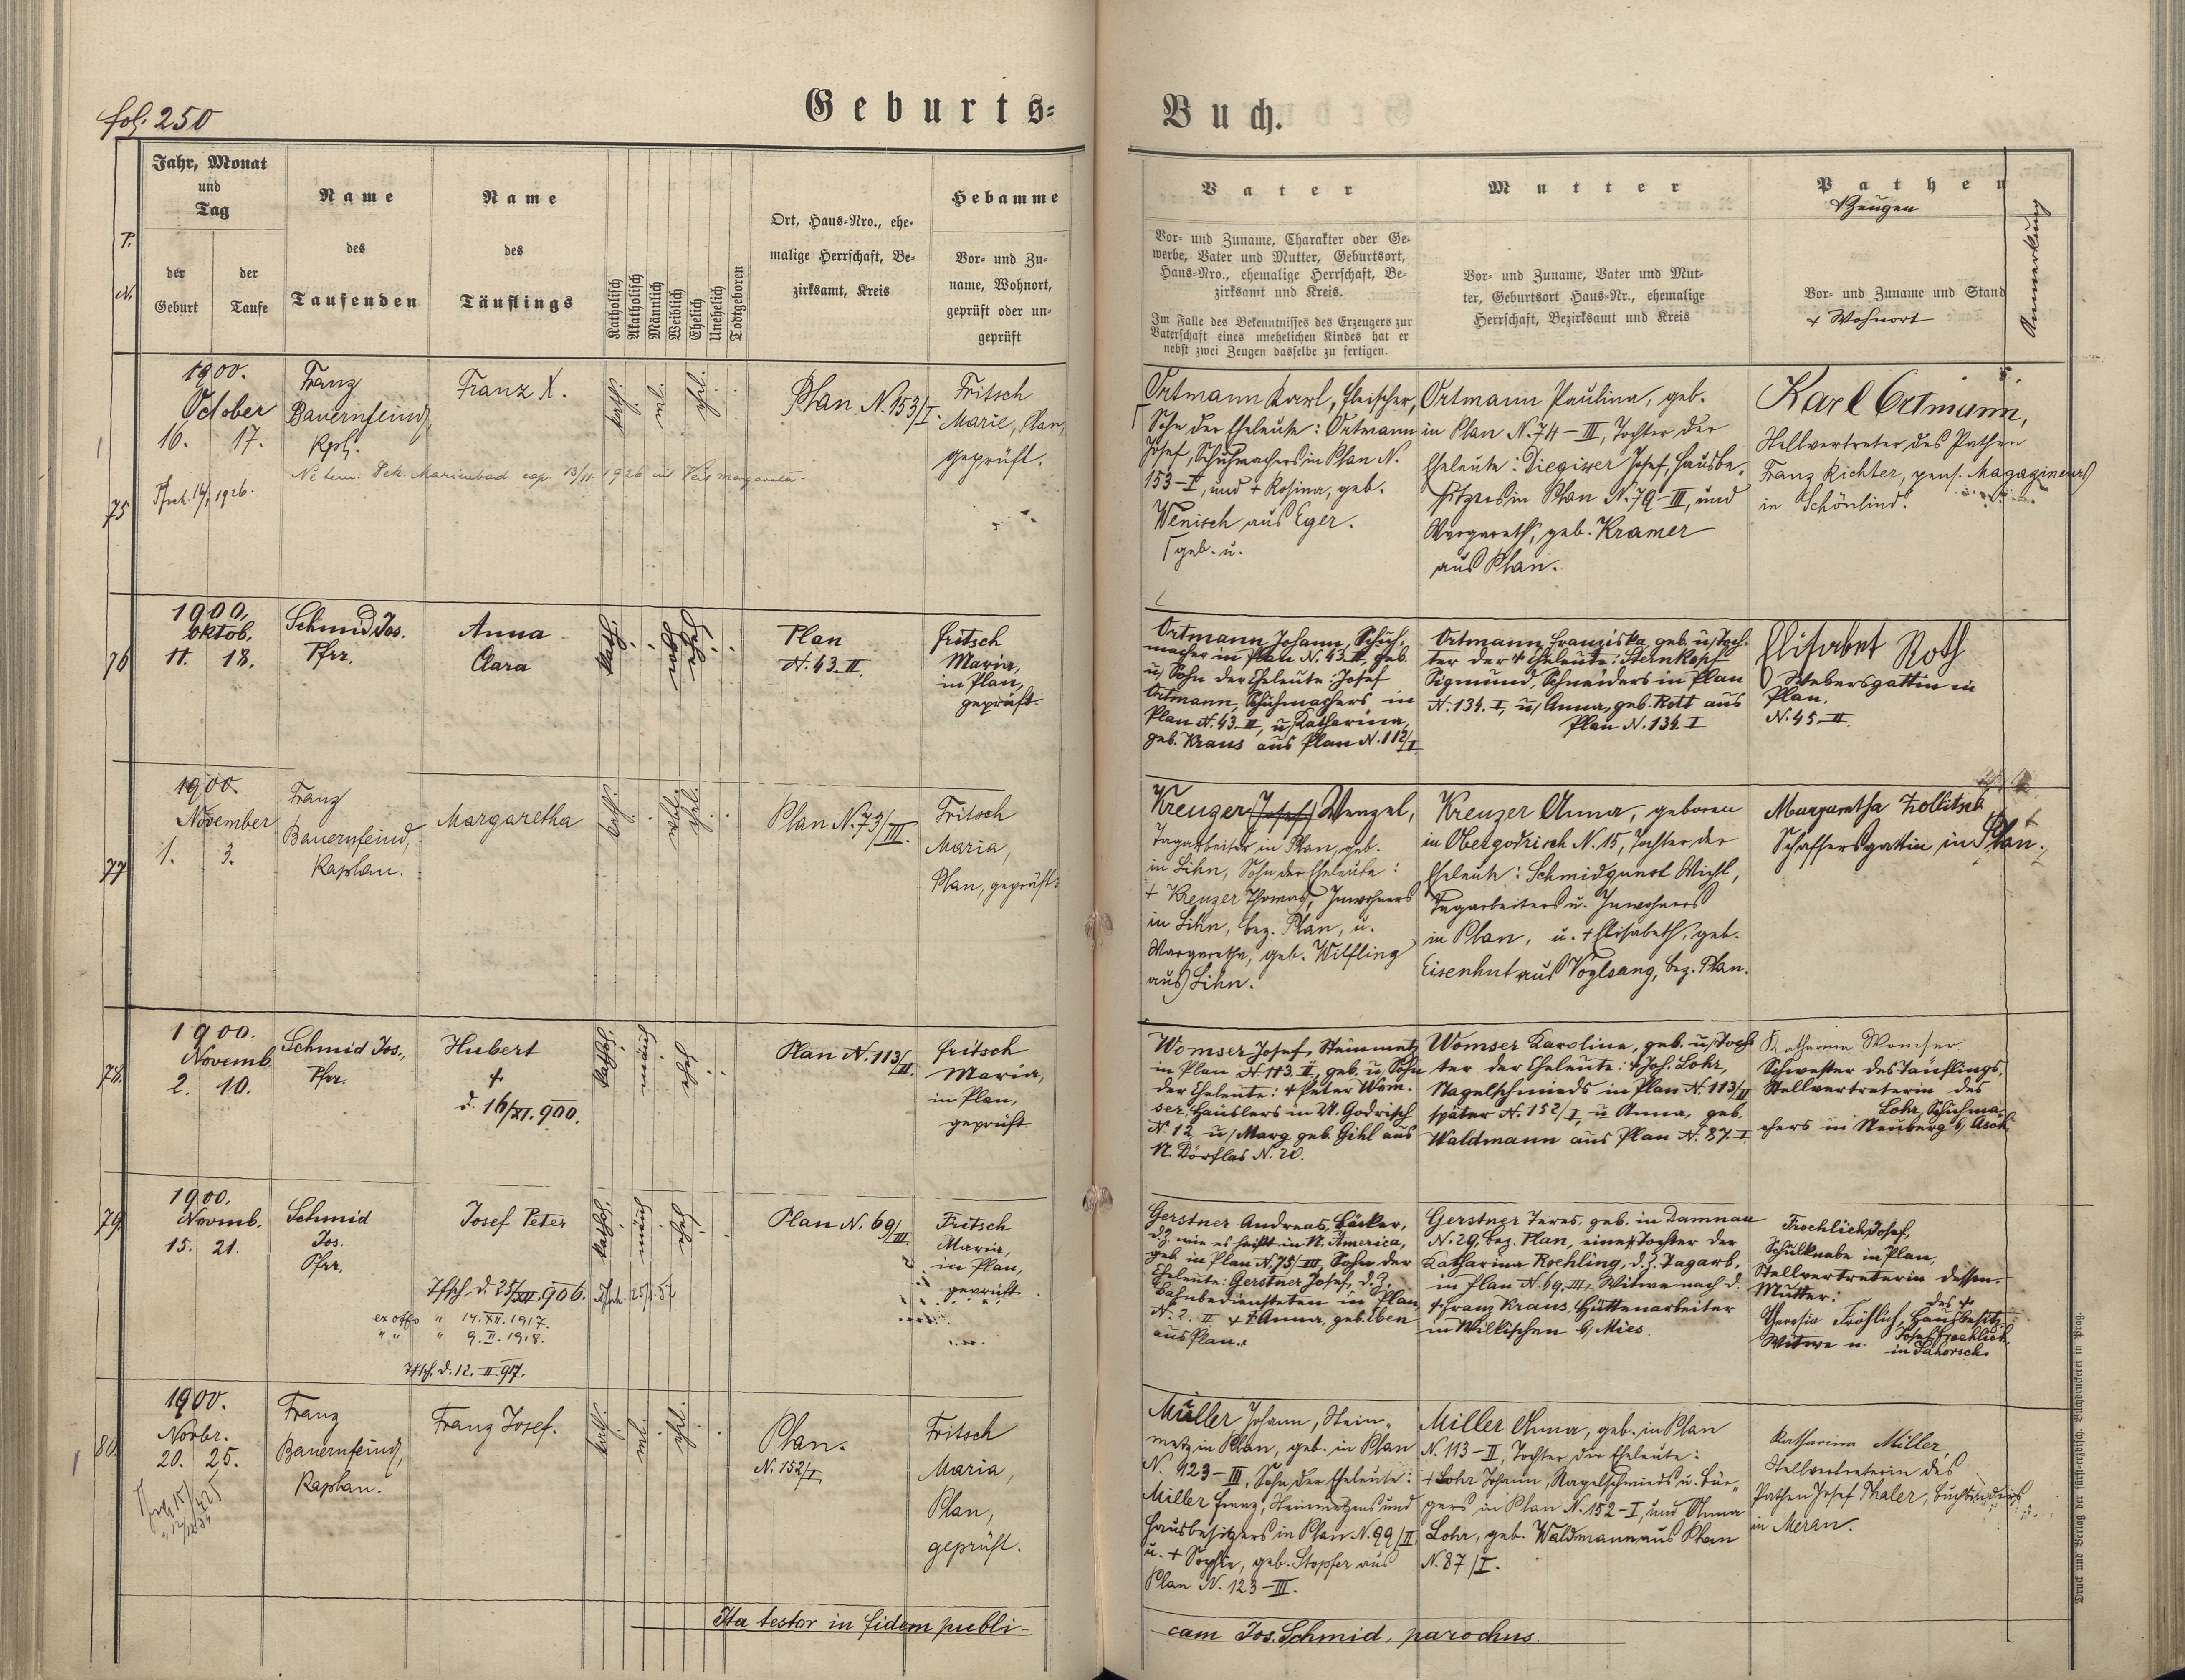 fol. 250
Geburts-
Buch.
P.
N.
Jahr, Monat
und
Tag
der
Geburt
der
Taufe
Name
des
Taufenden
Name
des
Täuflings
Katholisch
Akatholisch
Männlich
Weiblich
Ehelich
Unehelich
Todtgeboren
Ort, Haus-Nro., ehe-
malige Herrschaft, Be-
zirksamt, Kreis
Hebamme
Vor- und Zu-
name, Wohnort,
geprüft oder un-
geprüft
Vater
Vor- und Zuname, Charakter oder Ge-
werbe, Vater und Mutter, Geburtsort,
Haus-Nro., ehemalige Herrschaft, Be-
zirksamt und Kreis.
Im Falle des Bekenntnisses des Erzeugers zur
Vaterschaft eines unehelichen Kindes hat er
nebst zwei Zeugen dasselbe zu fertigen.
Mutter
Vor- und Zuname, Vater und Mut-
ter, Geburtsort Haus-Nr., ehemalige
Herrschaft, Bezirksamt und Kreis
Pathen
+ Zeugen
Vor- und Zuname und Stand
+ Wohnort
Anmerkung
75
1900.
October
16. 17.
1926.
Franz
Bauernfeind,
Kpl.
Franz X.
kath.
Plan N. 153/I.
Fritsch
Marie, Plan,
geprüft.
Ortmann Karl, Fleischer,
Sohn der Eheleute: Ortmann
Josef, Schuhmachers in Plan N.
153-I, und + Rosina, geb.
Wenisch aus Eger.
geb. u.
Ortmann Paulina, geb.
in Plan N. 74-III, Tochter der
Eheleute: Josef, Hausbe-
sitzers in Plan N. 79-III, und
Margareth, geb. Kramer
aus Plan.
Karl Ortmann,
Stellvertreter des Pathen
Franz Richter, pens. Magazineurs
in Schönlind.
76
1900.
Oktob.
11. 18.
Schmid Jos.
Pfrr.
Anna
Clara
Plan
N. 43-II.
Fritsch
Maria,
in Plan,
geprüft.
Ortmann Johann, Schuh-
macher in Plan N. 43-II, geb.
u/ Sohn der Eheleute: Josef
Ortmann, Schuhmachers in
Plan N. 43-II, u/ Katharina,
geb. Kraus aus Plan N. 112/I
Ortmann Franziska, geb. u/ Toch-
ter der + Eheleute: Sternkopf
Sigmund, Schneiders in Plan
N. 134. I, u/ Anna, geb. Rott aus
Plan N. 134. I
Elisabet Roth
Webersgattin in
Plan.
N. 45-II.
77
1900.
November
1. 3.
Franz
Bauernfeind,
Kaplan.
Margaretha
kath.
Plan N. 73/III.
Fritsch
Maria,
Plan, geprüft.
Kreuzer (Josef) Wenzel,
Tagarbeiter in Plan, geb.
in Lihn, Sohn der Eheleute:
+ Kreuzer Thomas, Inwohners
in Lihn, bez. Plan, u.
Margaretha, geb. Wilfling
aus Lihn.
Kreuzer Anna, geboren
in Obergodrisch N. 15, Tochter der
Eheleute: Schmidgunst Michl,
Tagarbeiters u. Inwohners
in Plan, u. + Elisabeth, geb.
Eisenhut aus Voglsang, bez. Plan.
Margaretha Zollitsch
Schaffersgattin in Plan.
78.
1900.
Novemb.
2. 10.
Schmid Jos.,
Pfrr.
Hubert
+
d. 16/XI. 900.
Plan N. 113/II.
Fritsch
Maria,
in Plan,
geprüft.
Womser Josef, Steinmetz
in Plan N. 113. II, geb. u, Sohn
der Eheleute: + Peter Wom-
ser, Häuslers in U. Godrisch
N. 12, u/ Marg. geb. Gihl aus
N. Dörflas N. 20.
Womser Karoline, geb. u/ Toch-
ter der Eheleute: + Joh. Lohr,
Nagelschmieds in Plan N. 113/II
später N. 152/I, u Anna, geb.
Waldmann aus Plan N. 87. I
Katharina Womser
Schwester des Täuflings,
Stellvertreterin des
Lohr, Schuhma-
chers in Neuberg b/ Asch.
79.
1900.
Novmb.
15. 21.
Schmid
Jos.
Pfrr.
Josef Peter
d. 25/XII. 906.
ex offo " 14. XII. 1917.
" " " 9. II. 1918.
d. 12. II. 917.
Plan N. 69/III
Fritsch
Maria,
in Plan,
geprüft.
Gerstner Andreas, Bäcker,
d.Z. wie es heißt in N. America,
geb in Plan N. 75/III, Sohn der
Eheleute: Gerstner Josef, d.Z.
Bahnbediensteten in Plan
N. 2. II + Anna, geb. Eben
aus Plan.
Gerstner Teres, geb. in Damnau
N. 29, bez. Plan, eine Tochter der
Katharina Rochling, d.Z. Tagarb.
in Plan N. 69. III, Witwe nach d.
+ Franz Kraus, Hüttenarbeiter
in Wilkischen b/ Mies.
Froehlich Josef,
Schulknabe in Plan,
Stellvertreterin dessen
Mutter:
Theresia Fröhlich, Hausbesitz.
Witwe n. des + Josef Froehlich
in Sahorsch.
80.
1900.
Novbr.
20. 25.
Franz
Bauernfeind,
Kaplan.
Franz Josef.
kath.
Plan.
N. 152/I.
Fritsch
Maria,
Plan,
geprüft.
Müller Johann, Stein-
metz in Plan, geb. in Plan
N. 123-III, Sohn der Eheleute:
Miller Franz, Steinmetzens und
Hausbesitzers in Plan N. 99/II,
u. + Sophie, geb. Stopfer aus
Plan N. 123-III.
Miller Anna, geb. in Plan
N. 113-II, Tochter der Eheleute:
+ Lohr Johann, Nagelschmieds u. Bür-
gers in Plan N. 152-I, und Anna
Lohr, geb. Waldmann aus Plan
N. 87/I.
Katharina Miller,
Stellvertreterin des
Pathen Josef Thaler, Buchbinders
in Meran.
Ita testor in fidem publi-
cam Jos. Schmid, parochus.
Druck und Verlag der fürst-erzbisch. Buchdruckerei in Prag.